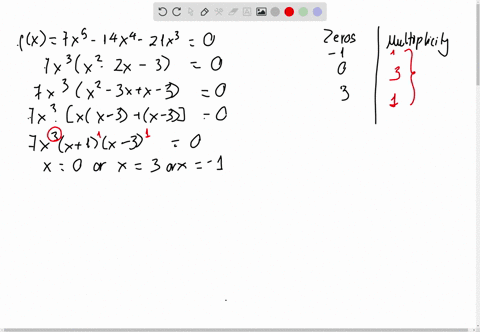 f(x) = 7x⁵ - 14x⁴ - 21x³ = 0
7x³(x² - 2x - 3) = 0
7x³(x² - 3x + x - 3) = 0
7x³ · [x(x-3) + (x-3)] = 0
7x³(x+1)¹(x-3)¹ = 0
x = 0 or x = 3 or x = -1
Zeros | Multiplicity
-1 1
0 3
3 1